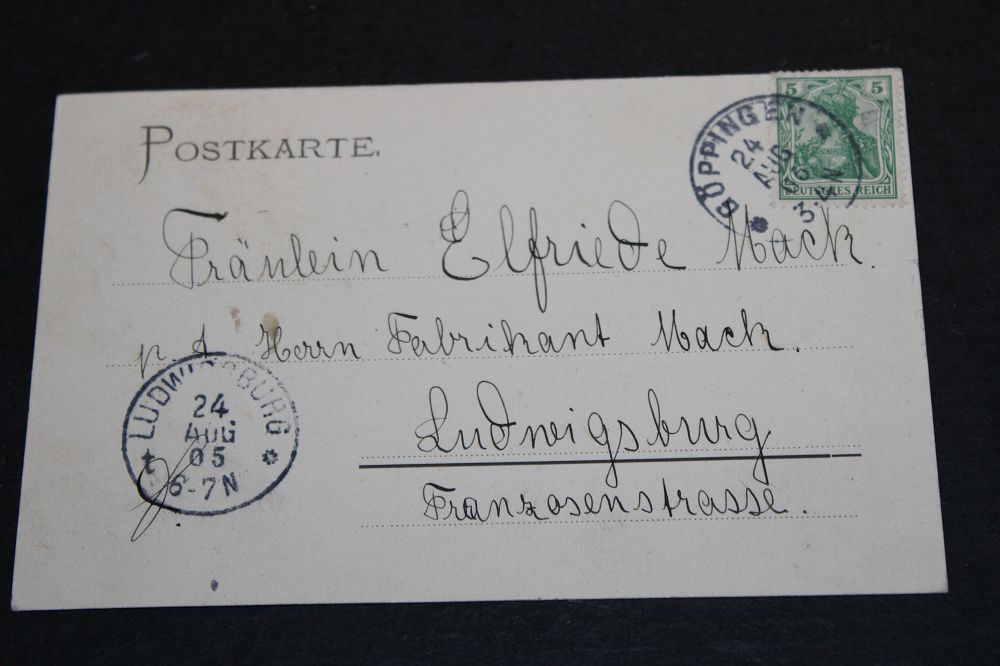 POSTKARTE.
5 5
DEUTSCHES REICH
GÖPPINGEN
24
AUG
3-4N
Fräulein Elfriede Mack.
p. A. Herrn Fabrikant Mack.
Ludwigsburg
Franzosenstrasse.
LUDWIGSBURG
24
AUG
05
6-7N